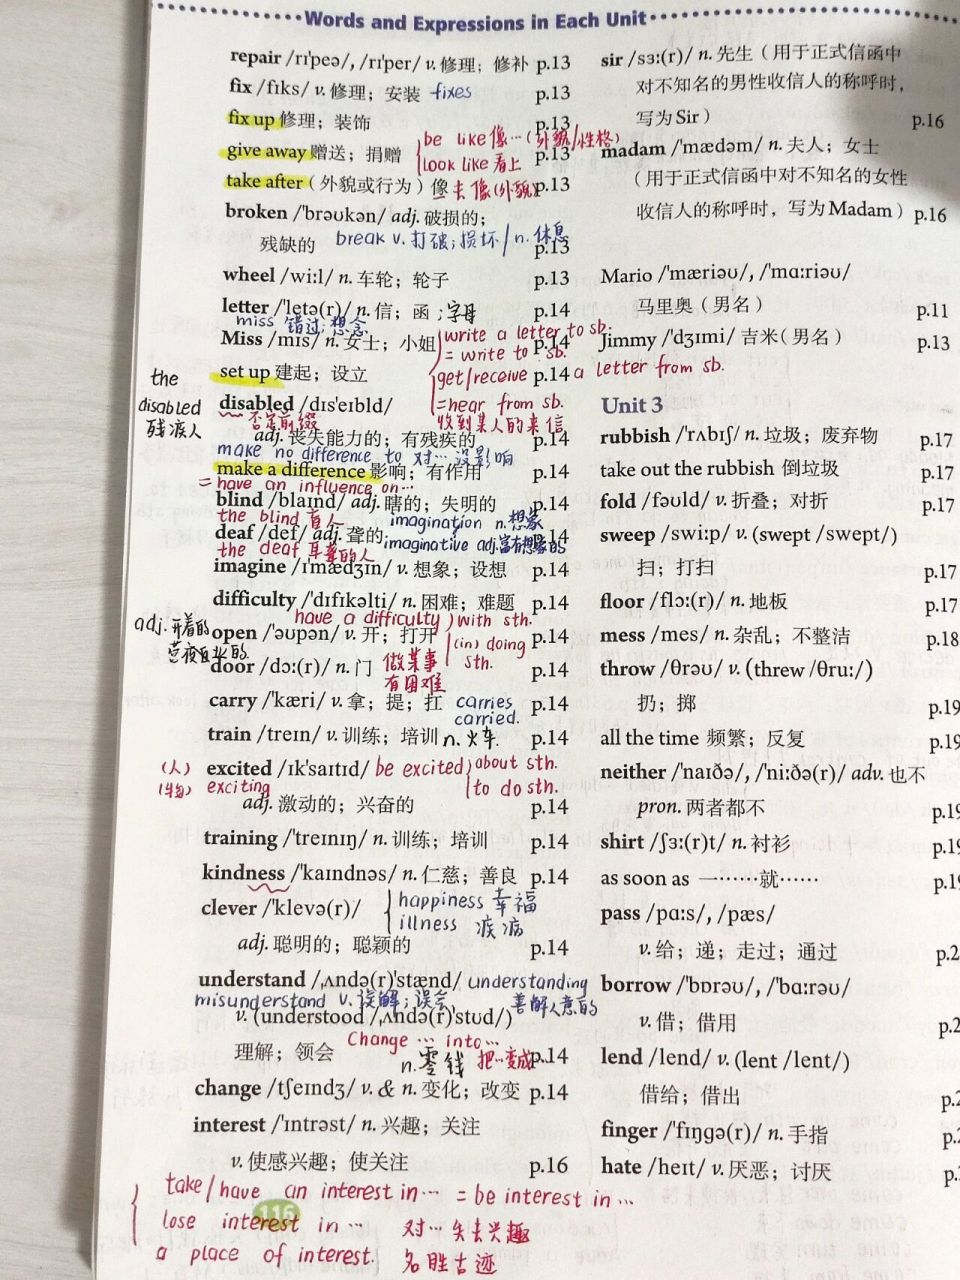 Words and Expressions in Each Unit
repair /rɪˈpeə/, /rɪˈper/ v. 修理；修补 p.13
fix /fɪks/ v. 修理；安装 fixes p.13
fix up 修理；装饰 p.13
be like 像…(外貌/性格)
give away 赠送；捐赠 p.13
look like 看上去像(外貌)
take after（外貌或行为）像 p.13
broken /ˈbrəʊkən/ adj. 破损的；
残缺的 p.13
break v. 打破；损坏/n. 休息
wheel /wiːl/ n. 车轮；轮子 p.13
letter /ˈletə(r)/ n. 信；函；字母 p.14
miss 错过；想念
Miss /mɪs/ n. 女士；小姐 p.14
write a letter to sb.
= write to sb.
set up 建起；设立 p.14
get/receive a letter from sb.
=hear from sb.
收到某人的来信
the
disabled
残疾人
disabled /dɪsˈeɪbld/
否定前缀
adj. 丧失能力的；有残疾的 p.14
make no difference to 对…没影响
make a difference 影响；有作用 p.14
= have an influence on…
blind /blaɪnd/ adj. 瞎的；失明的 p.14
the blind 盲人
imagination n. 想象
deaf /def/ adj. 聋的 p.14
the deaf 耳聋的人
imaginative adj. 富有想象的
imagine /ɪˈmædʒɪn/ v. 想象；设想 p.14
difficulty /ˈdɪfɪkəlti/ n. 困难；难题 p.14
have a difficulty with sth.
(in) doing sth.
做某事有困难
adj. 开着的
营夜业的
open /ˈəʊpən/ v. 开；打开 p.14
door /dɔː(r)/ n. 门 p.14
carry /ˈkæri/ v. 拿；提；扛 p.14
carries
carried.
train /treɪn/ v. 训练；培训 n. 火车 p.14
(人) excited /ɪkˈsaɪtɪd/ be excited about sth.
to do sth.
(物) exciting
adj. 激动的；兴奋的 p.14
training /ˈtreɪnɪŋ/ n. 训练；培训 p.14
kindness /ˈkaɪndnəs/ n. 仁慈；善良 p.14
happiness 幸福
illness 疾病
clever /ˈklevə(r)/
adj. 聪明的；聪颖的 p.14
understand /ˌʌndə(r)ˈstænd/ understanding
善解人意的
misunderstand v. 误解；误会
v. (understood /ˌʌndə(r)ˈstʊd/)
理解；领会 p.14
Change … into…
把…变成
n. 零钱
change /tʃeɪndʒ/ v. & n. 变化；改变 p.14
interest /ˈɪntrəst/ n. 兴趣；关注
v. 使感兴趣；使关注 p.16
take/have an interest in… = be interest in…
lose interest in… 对…失去兴趣
a place of interest. 名胜古迹
116
sir /sɜː(r)/ n. 先生（用于正式信函中
对不知名的男性收信人的称呼时，
写为 Sir） p.16
madam /ˈmædəm/ n. 夫人；女士
（用于正式信函中对不知名的女性
收信人的称呼时，写为 Madam） p.16
Mario /ˈmæriəʊ/, /ˈmɑːriəʊ/
马里奥（男名） p.11
Jimmy /ˈdʒɪmi/ 吉米（男名） p.13
Unit 3
rubbish /ˈrʌbɪʃ/ n. 垃圾；废弃物 p.17
take out the rubbish 倒垃圾 p.17
fold /fəʊld/ v. 折叠；对折 p.17
sweep /swiːp/ v. (swept /swept/)
扫；打扫 p.17
floor /flɔː(r)/ n. 地板 p.17
mess /mes/ n. 杂乱；不整洁 p.18
throw /θrəʊ/ v. (threw /θruː/)
扔；掷 p.19
all the time 频繁；反复 p.19
neither /ˈnaɪðə/, /ˈniːðə(r)/ adv. 也不
pron. 两者都不 p.19
shirt /ʃɜː(r)t/ n. 衬衫 p.19
as soon as 一……就…… p.19
pass /pɑːs/, /pæs/
v. 给；递；走过；通过 p.2
borrow /ˈbɒrəʊ/, /ˈbɑːrəʊ/
v. 借；借用 p.2
lend /lend/ v. (lent /lent/)
借给；借出 p.2
finger /ˈfɪŋɡə(r)/ n. 手指 p.2
hate /heɪt/ v. 厌恶；讨厌 p.